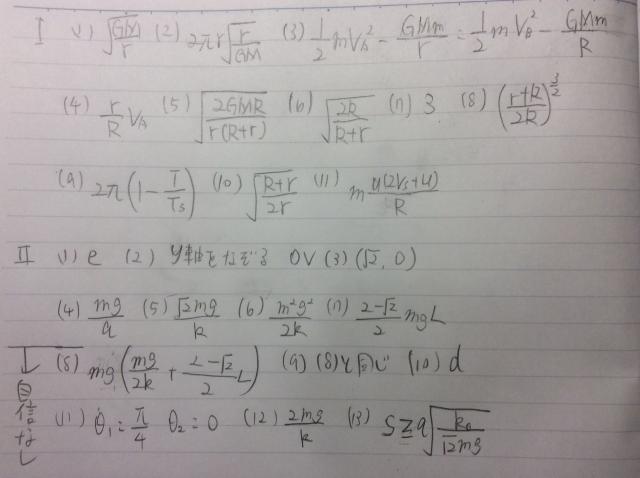 I (1) √(GM/r) (2) 2πr√(r/GM) (3) 1/2 mV_A² - GMm/r = 1/2 mV_B² - GMm/R
(4) r/R V_A (5) √(2GMR/r(R+r)) (6) √(2R/R+r) (7) 3 (8) (r+R/2R)^3/2
(9) 2π(1-T/T_S) (10) √(R+r/2r) (11) m u(2V_S+u)/R
II (1) e (2) y軸をなぞる 0V (3) (√2, 0)
(4) mg/a (5) √2mg/k (6) m²g²/2k (7) 2-√2/2 mgL
(8) mg(mg/2k + 2-√2/2 L) (9) (8)と同じ (10) d
(11) θ₁=π/4 θ₂=0 (12) 2mg/k (13) S≧a√(ka/√2mg)
↓自信なし